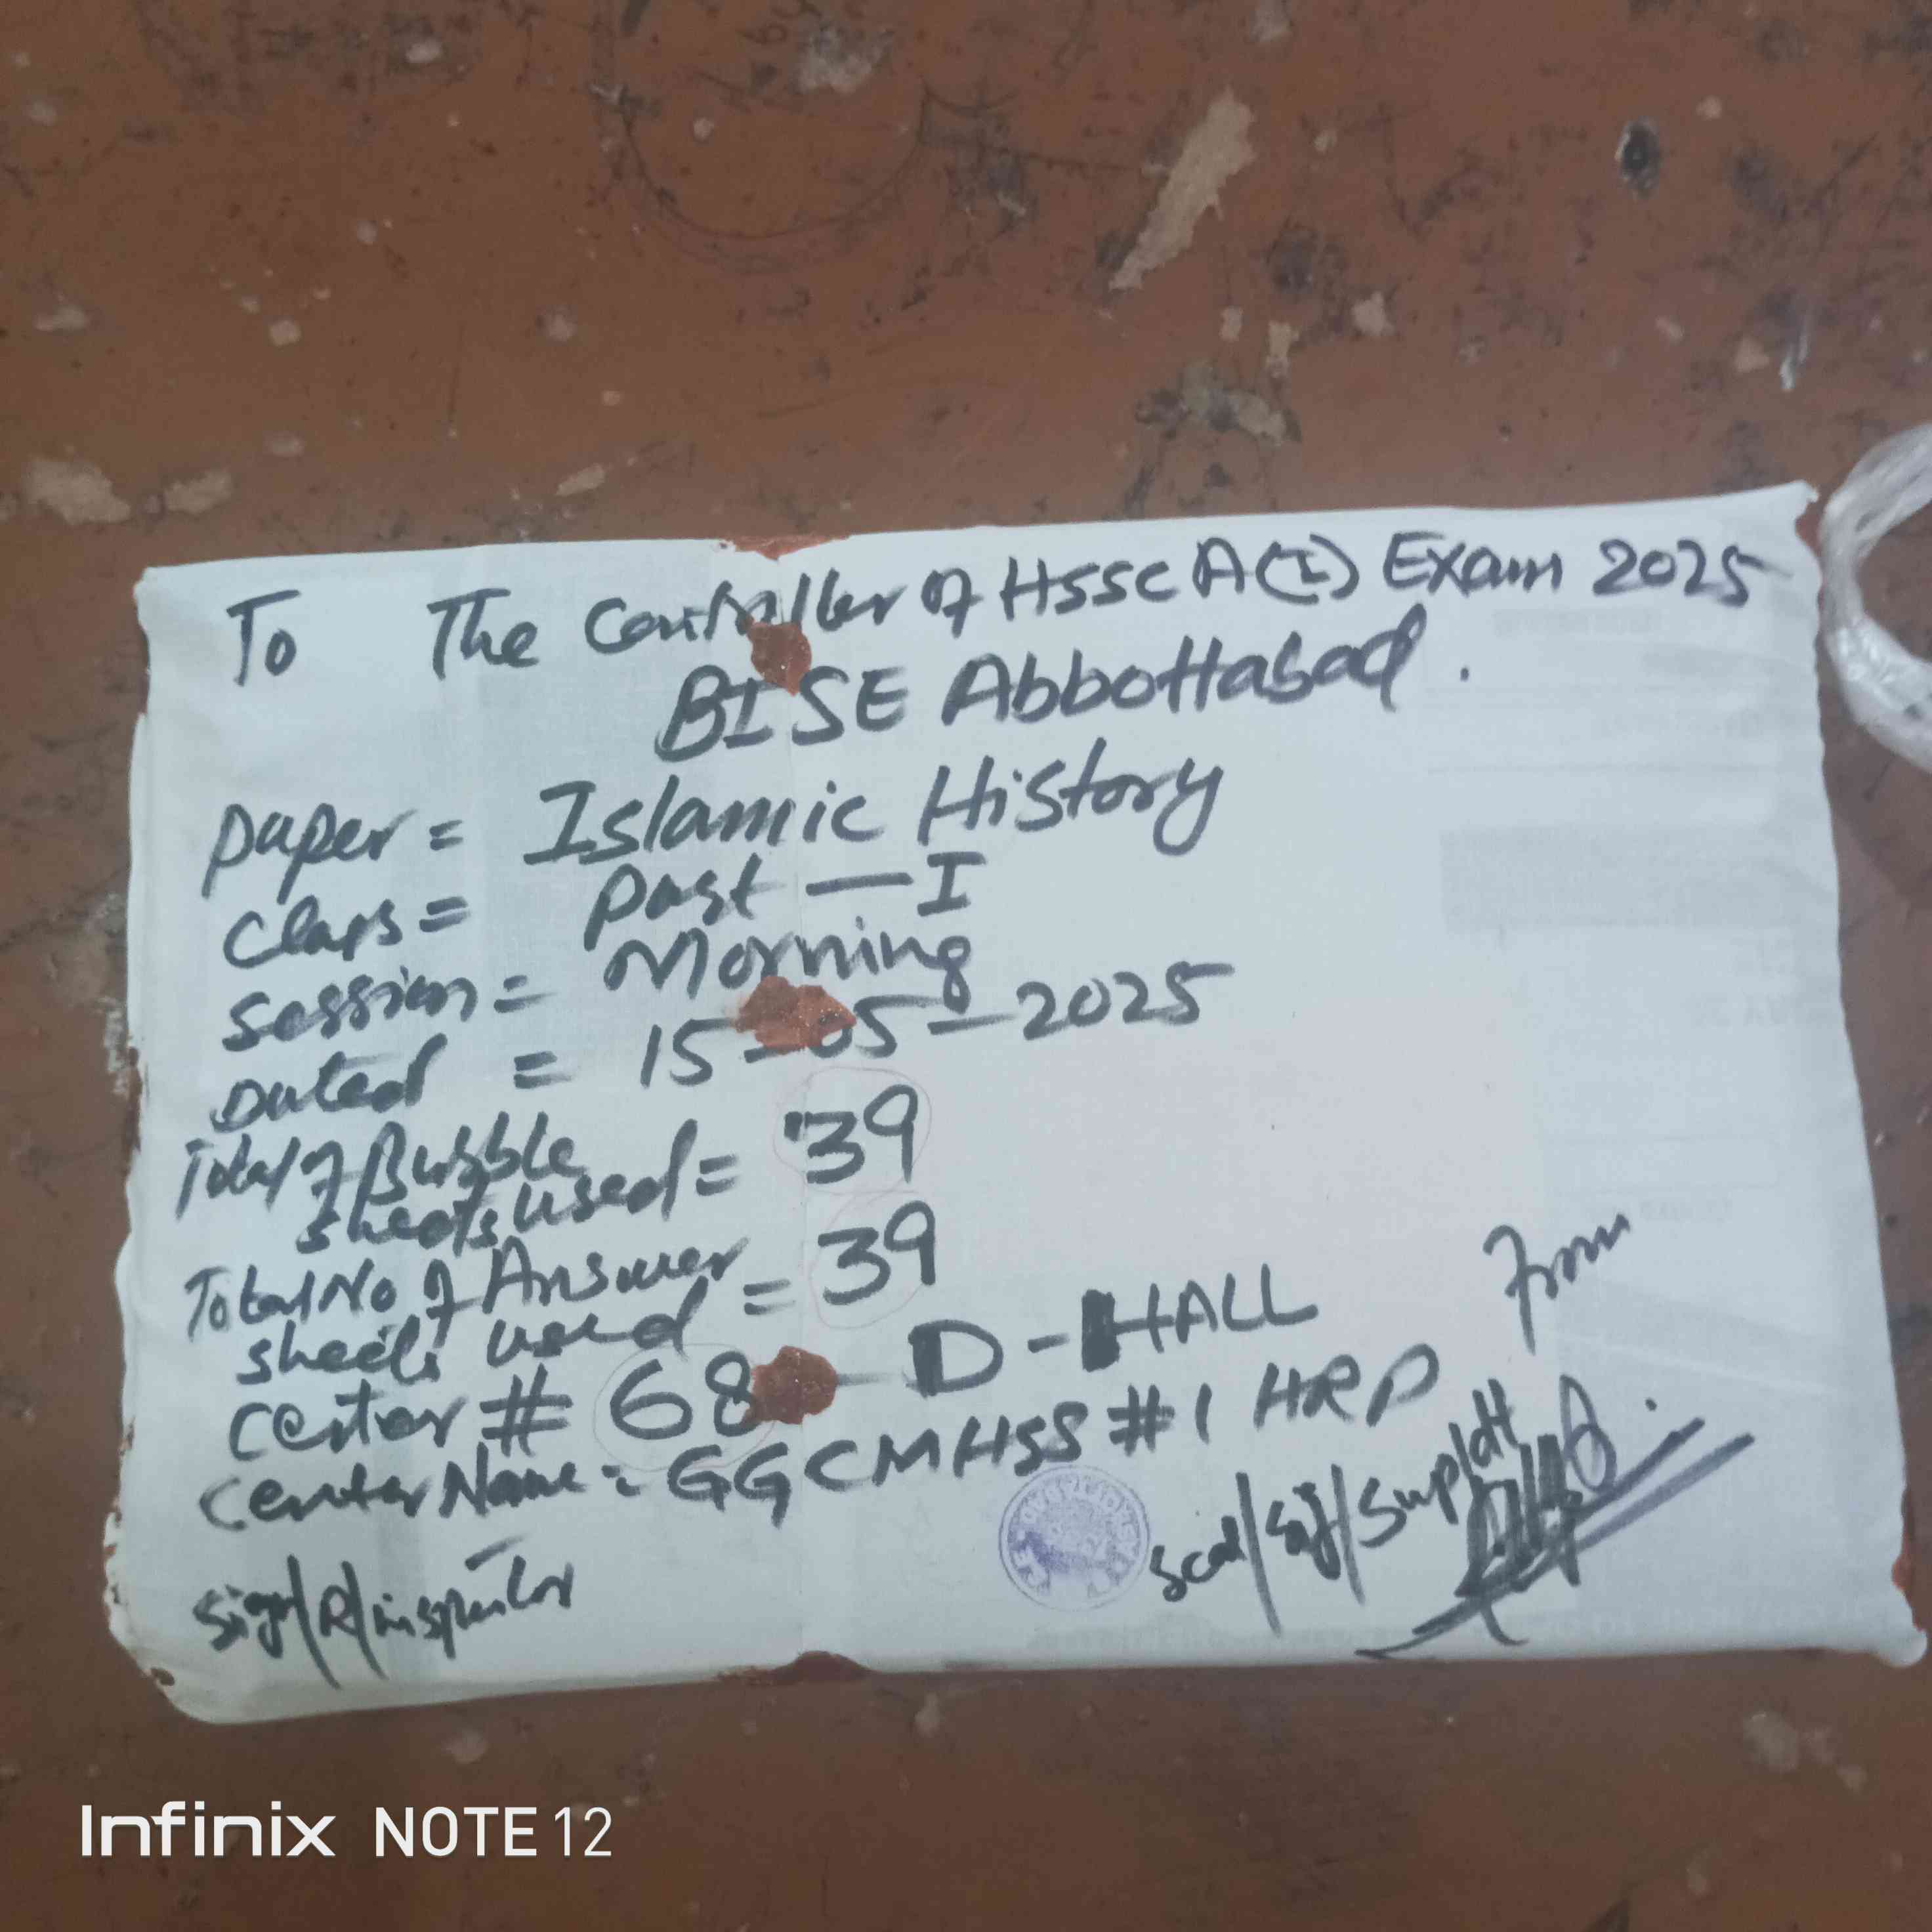 To The Controller of HSSC A(I) Exam 2025
BISE Abbottabad.
paper = Islamic History
Class = Part — I
Session = Morning
Dated = 15-05-2025
Total of Bubble
sheets used = 39
Total No of Answer
sheets used = 39
Center # 68 - D - HALL
Center Name: GGCMHSS #1 HRP
From
Seal/Sig/Supdtt
Sign/R/inspector
Infinix NOTE 12